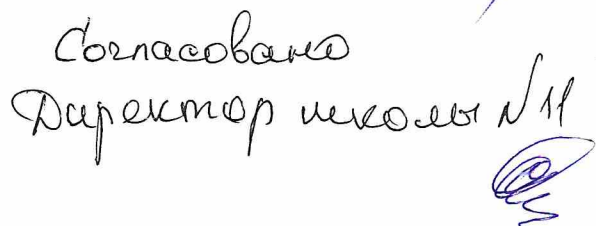 Согласовано
Директор школы N 11